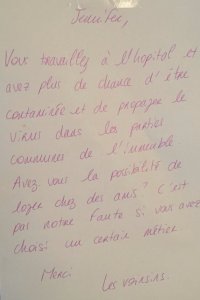 Jennifer,
Vous travaillez à l'hôpital et
avez plus de chance d'être
contaminée et de propager le
virus dans les parties
communes de l'immeuble.
Avez vous la possibilité de
loger chez des amis? C'est
pas notre faute si vous avez
choisi un certain métier.
Merci
Les voisins.